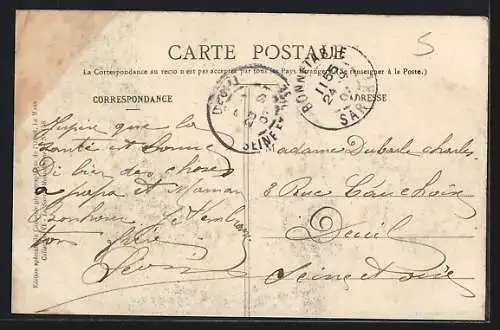 5
CARTE POSTALE
La Correspondance au recto n'est pas acceptée par tous les Pays étrangers (Se renseigner à la Poste.)
CORRESPONDANCE
ADRESSE
BONNÉTABLE
11 55
24
SARTHE
SEINE ET OISE
J'espère que la
santé est bonne
Di bien des choses
a papa et Maman
Bonheur Je t'embrasse
ton frère
Madame Dubarle charles
8 Rue Cauchoix
Deuil
Seine et oise